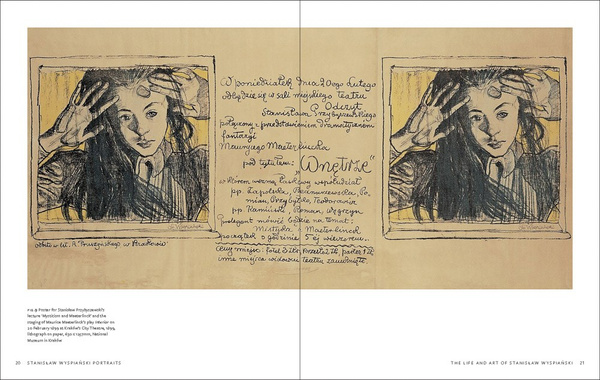 W poniedziałek dnia 20ego Lutego
odbędzie się w sali miejskiego teatru
Odczyt
Stanisława Przybyszewskiego
połączony z przedstawieniem dramatycznem
fantazyi
Maurycego Maeterlincka
pod tytułem: „Wnętrze"
w którem wezmą łaskawy współudział
pp. Zapolska, Bednarzewska, Po-
mian, Przybyłko,
pp. Kamiński, Roman, Węgrzyn
Prelegent mówić będzie na temat:
Mistyka i Maeterlinck
początek o godzinie 5ej wieczorem.
Ceny miejsc: fotel 3 złr. krzesło 2 złr. parter 1 złr
inne miejsca widowni teatru zamknięte
odbito w lit. A. Pruszyńskiego w Krakowie
Poster for Stanisław Przybyszewski's
lecture 'Mysticism and Maeterlinck' and the
staging of Maurice Maeterlinck's play Interior on
20 February 1899 at Kraków's City Theatre, 1899,
lithograph on paper, National
Museum in Kraków
20 STANISŁAW WYSPIAŃSKI PORTRAITS
THE LIFE AND ART OF STANISŁAW WYSPIAŃSKI 21